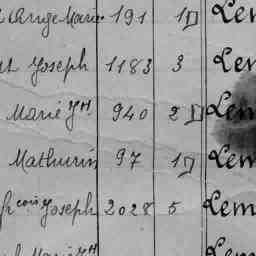 Ange Marie 191 1 Lem
Joseph 1183 3 Lem
Marie Jh 940 2 Lem
Mathurin 97 1 Lem
frcois Joseph 2028 5 Lem
Marie Jh Lem